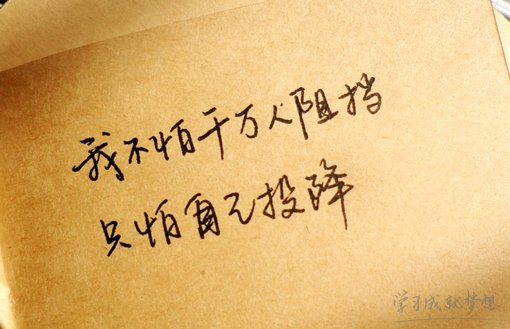 我不怕千万人阻挡
只怕自己投降
学习成就梦想